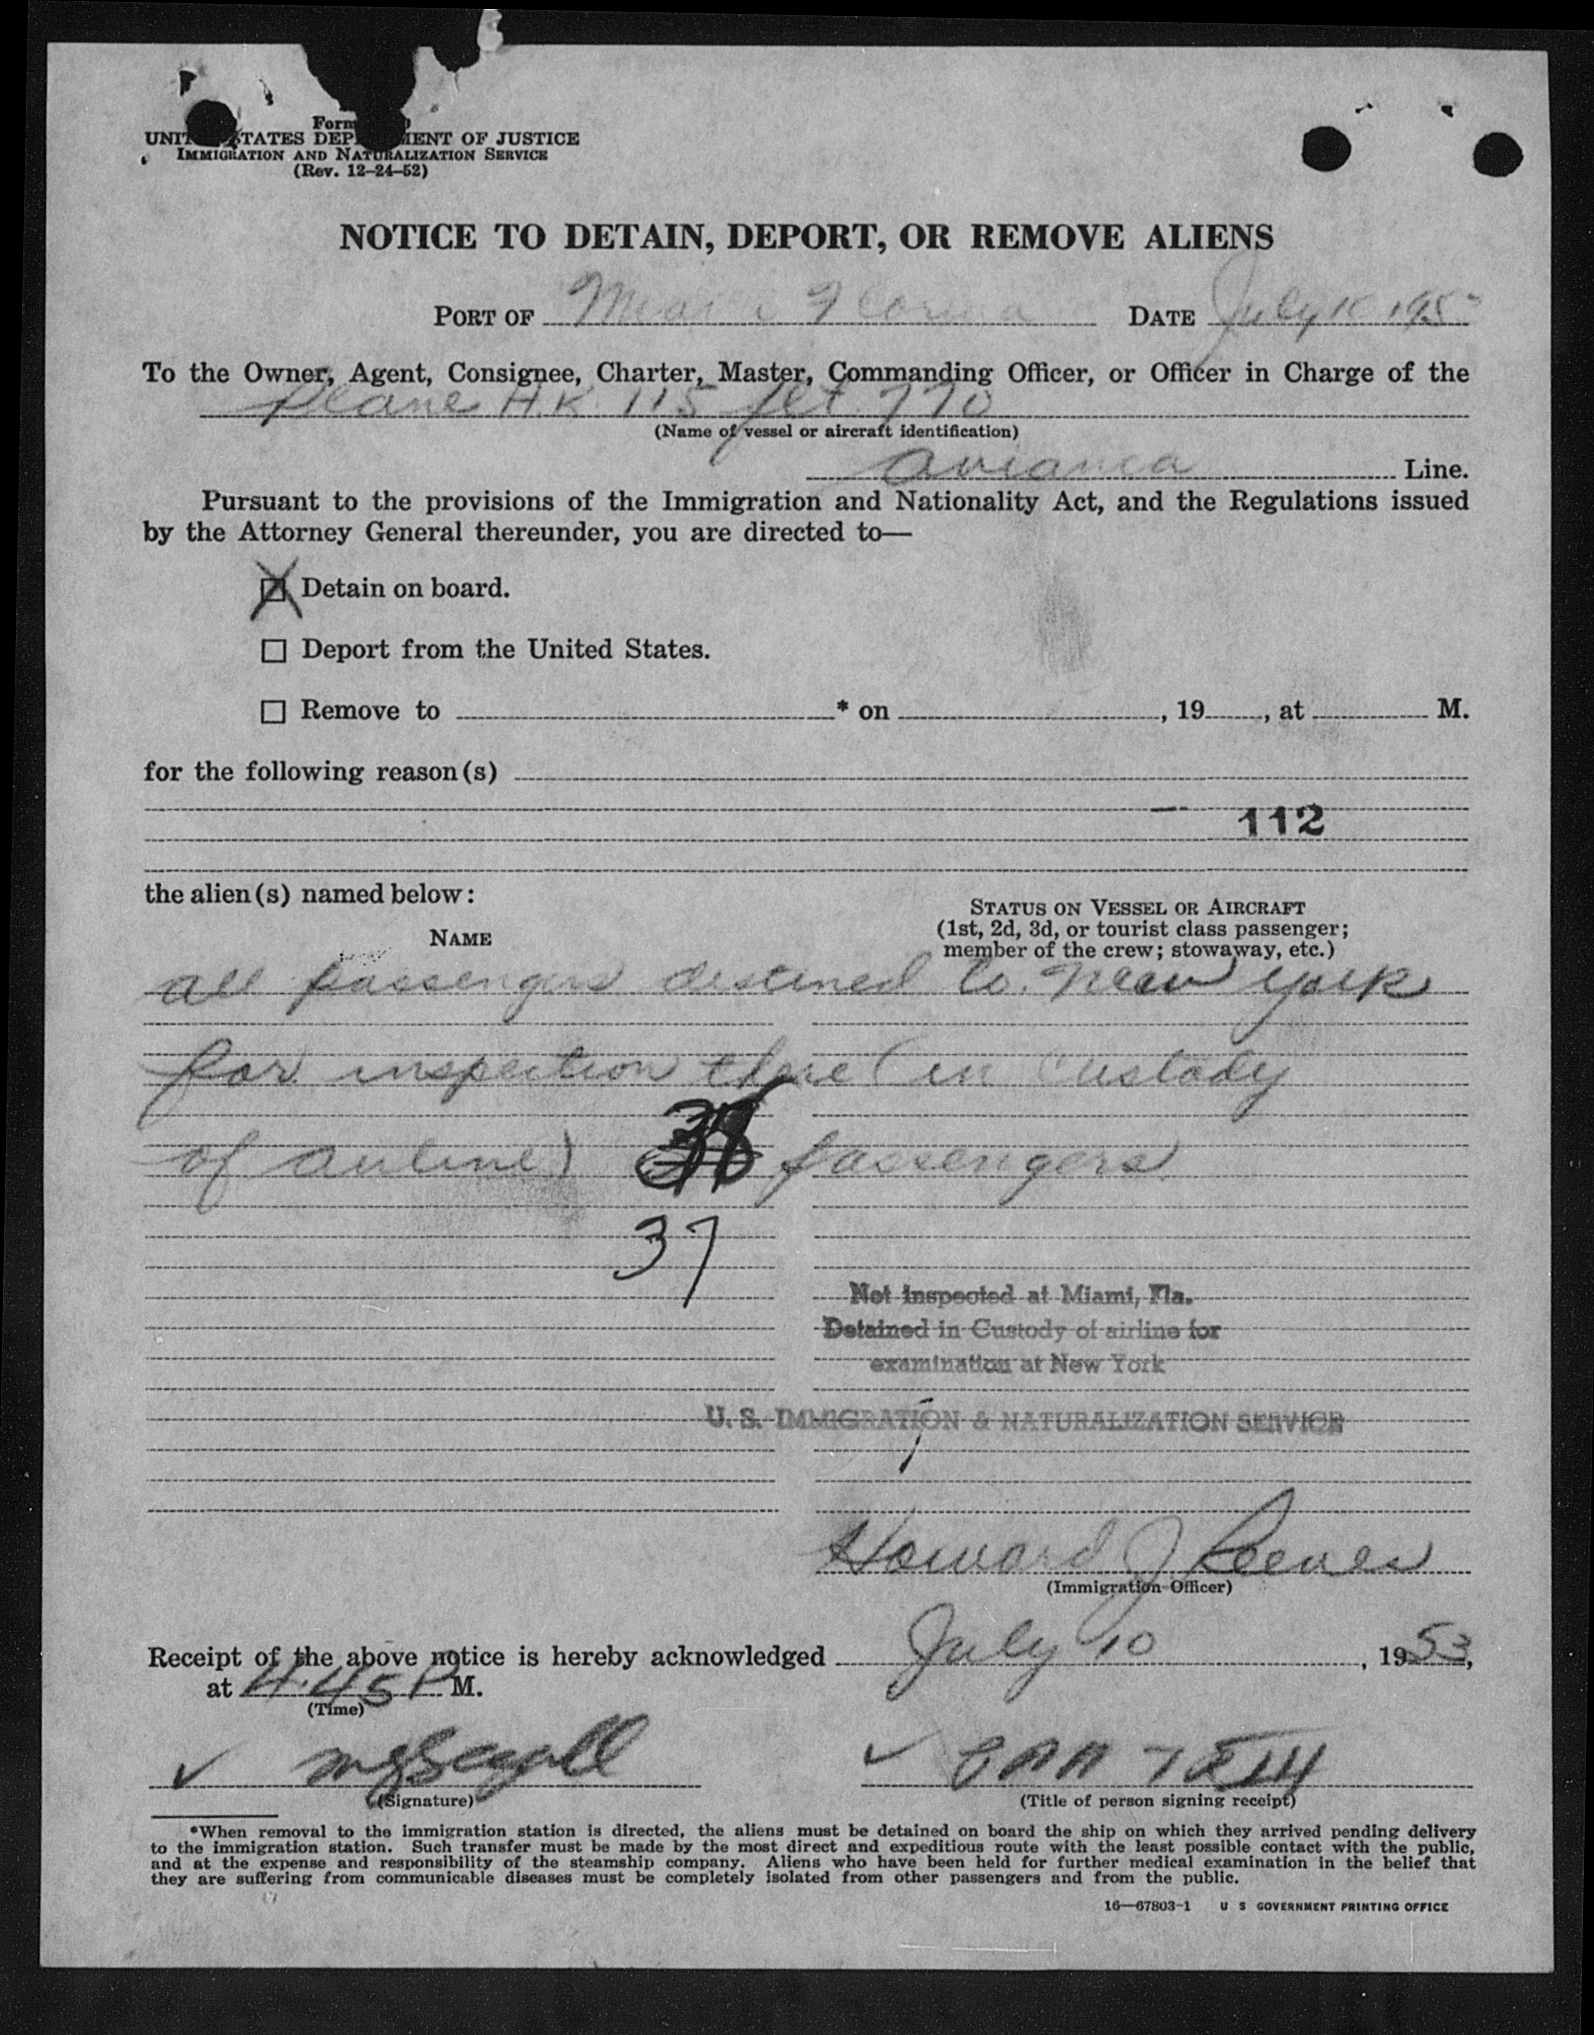 Form
UNITED STATES DEPARTMENT OF JUSTICE
IMMIGRATION AND NATURALIZATION SERVICE
(Rev. 12-24-52)
NOTICE TO DETAIN, DEPORT, OR REMOVE ALIENS
PORT OF Miami Florida DATE July 10 1953
To the Owner, Agent, Consignee, Charter, Master, Commanding Officer, or Officer in Charge of the
Plane H.K. 115 flt. 770
(Name of vessel or aircraft identification)
Avianca Line.
Pursuant to the provisions of the Immigration and Nationality Act, and the Regulations issued
by the Attorney General thereunder, you are directed to—
☒ Detain on board.
☐ Deport from the United States.
☐ Remove to * on , 19 , at M.
for the following reason(s)
112
the alien(s) named below:
STATUS ON VESSEL OR AIRCRAFT
(1st, 2d, 3d, or tourist class passenger;
member of the crew; stowaway, etc.)
NAME
all passengers destined to New York
for inspection there (in custody
of airline) passengers
37
Not inspected at Miami, Fla.
Detained in Custody of airline for
examination at New York
U. S. IMMIGRATION & NATURALIZATION SERVICE
Howard J Reeves
(Immigration Officer)
Receipt of the above notice is hereby acknowledged July 10, 1953,
at 4:45 P M.
(Time)
(Signature)
(Title of person signing receipt)
*When removal to the immigration station is directed, the aliens must be detained on board the ship on which they arrived pending delivery
to the immigration station. Such transfer must be made by the most direct and expeditious route with the least possible contact with the public,
and at the expense and responsibility of the steamship company. Aliens who have been held for further medical examination in the belief that
they are suffering from communicable diseases must be completely isolated from other passengers and from the public.
16—67803-1 U S GOVERNMENT PRINTING OFFICE